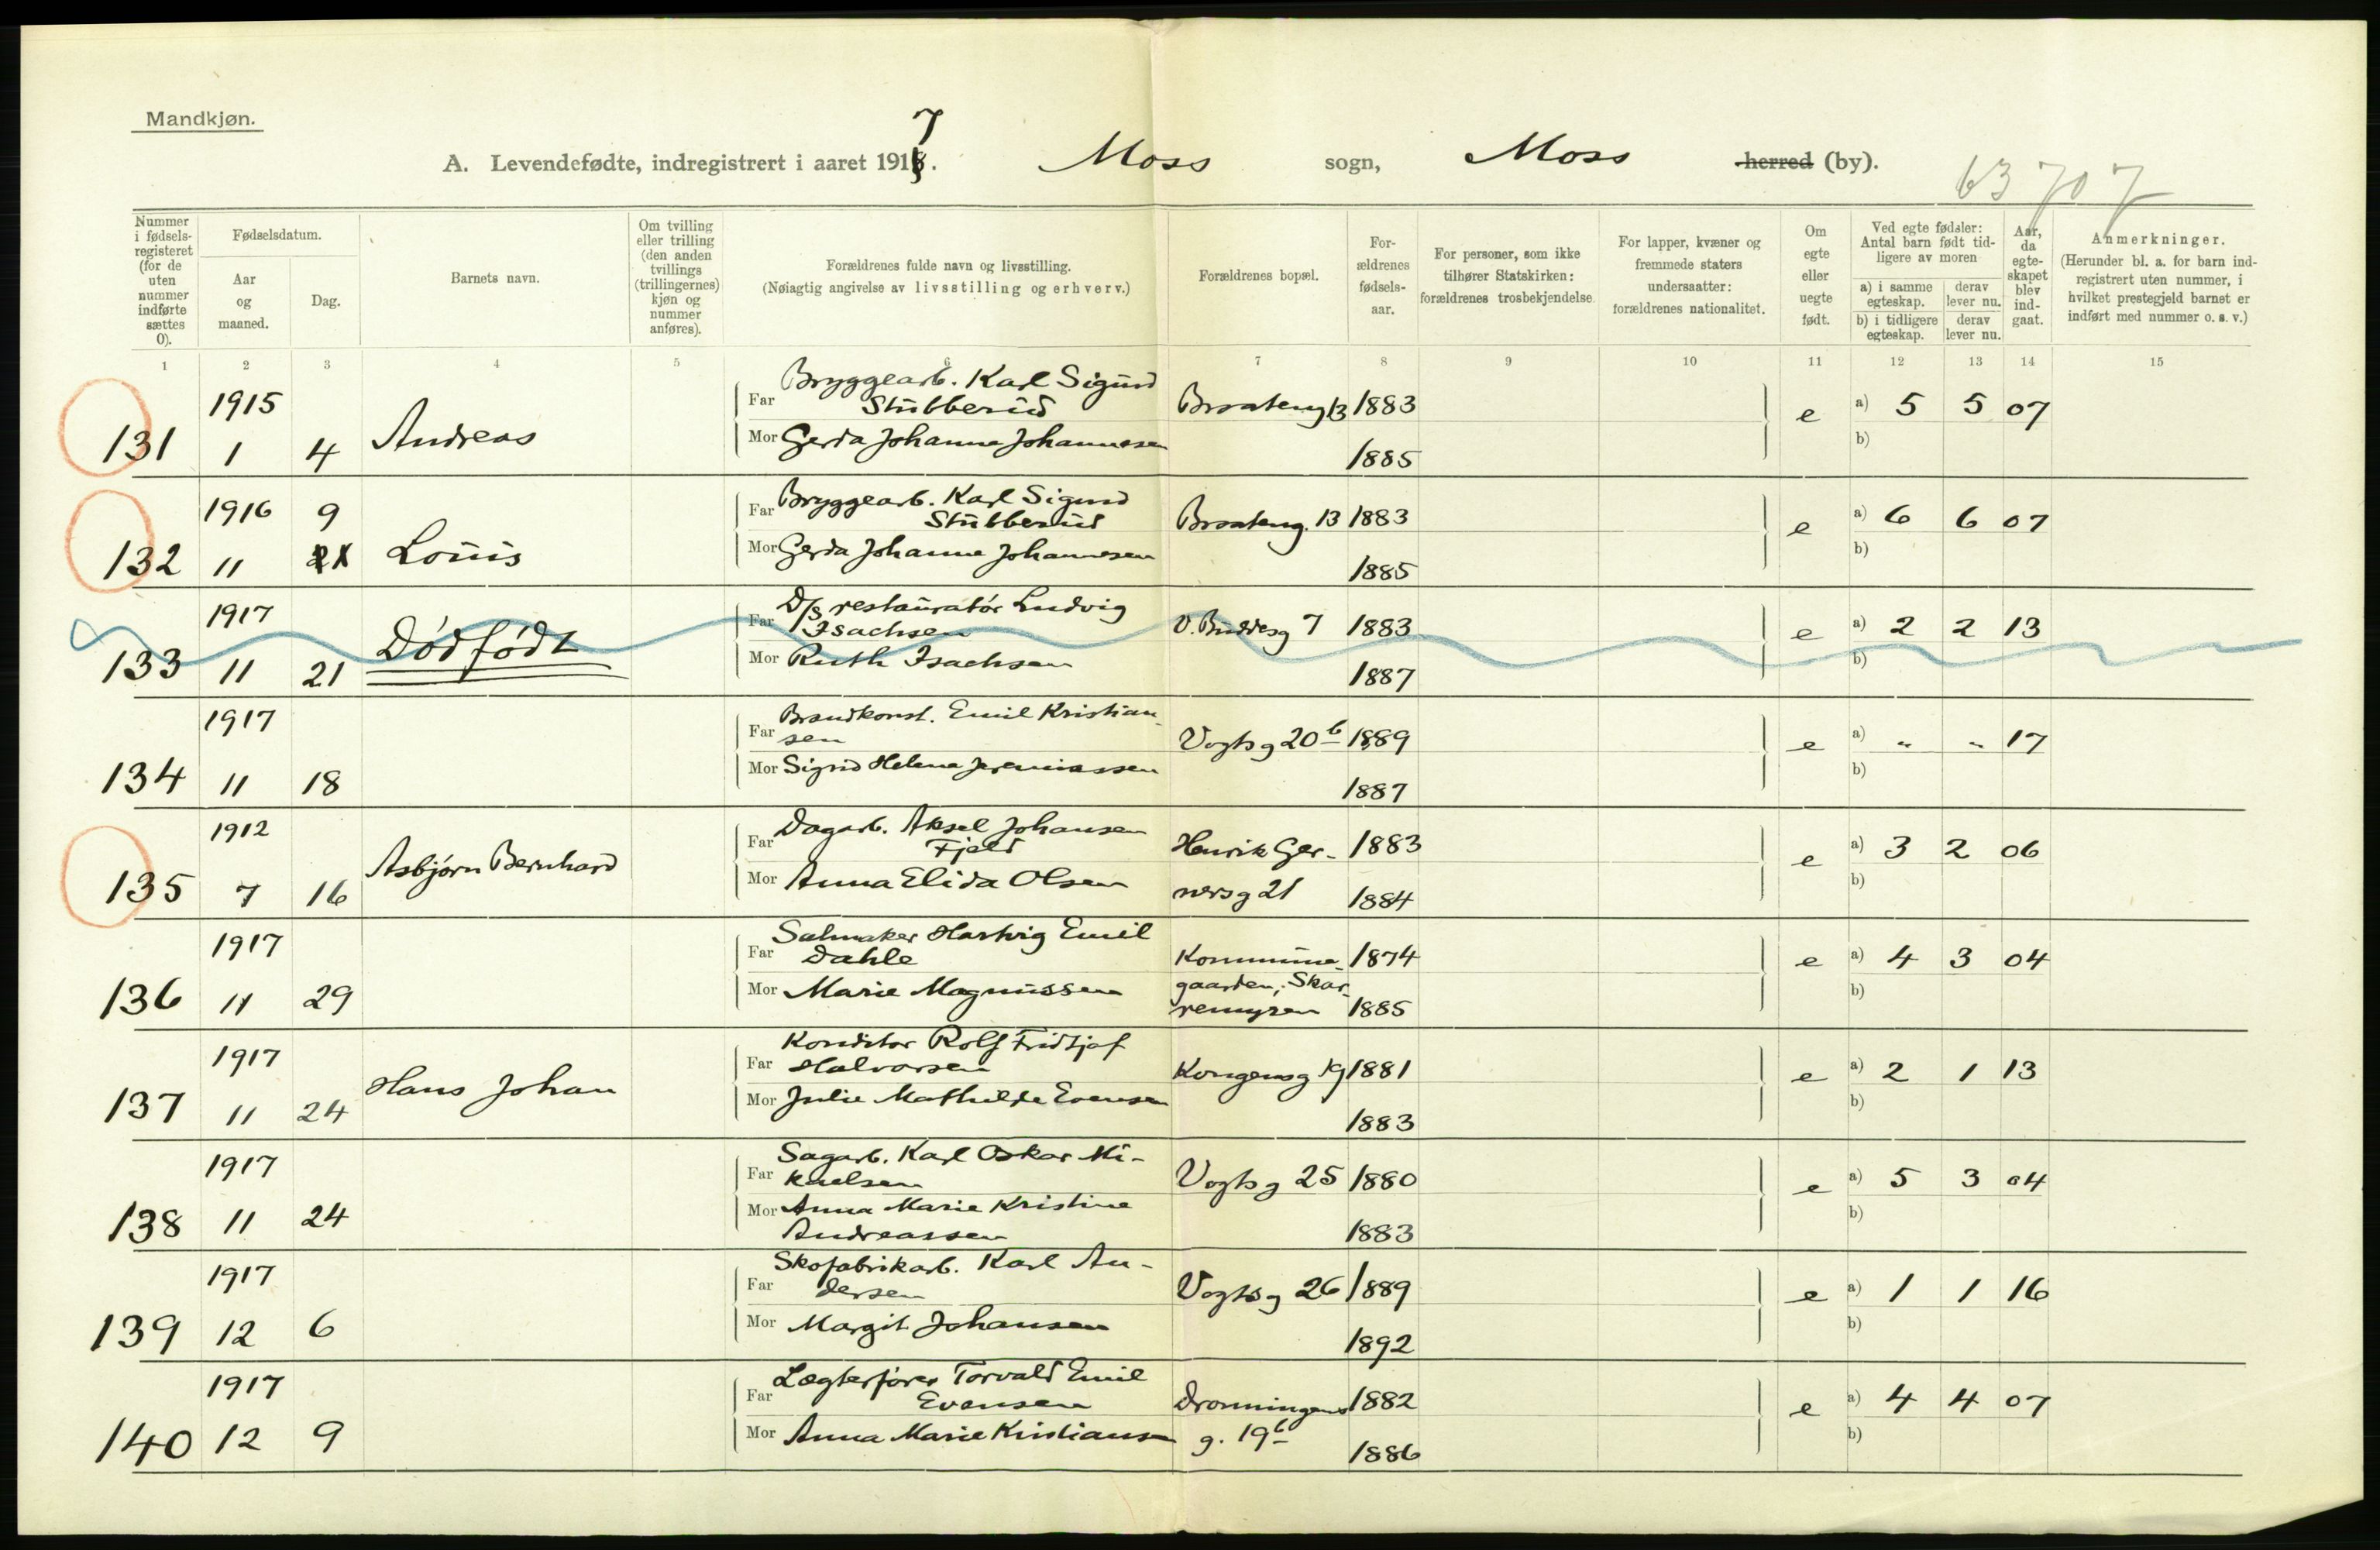 Mandkjøn.
A. Levendefødte, indregistrert i aaret 1917. Moss sogn, Moss herred (by).
63 707
Nummer i fødselsregisteret (for de uten nummer indførte sættes 0).
Fødselsdatum.
Aar og maaned.
Dag.
Barnets navn.
Om tvilling eller trilling (den anden tvillings (trillingernes) kjøn og nummer anføres).
Forældrenes fulde navn og livsstilling.
(Nøiagtig angivelse av livsstilling og erhverv.)
Forældrenes bopæl.
For-ældrenes fødsels-aar.
For personer, som ikke tilhører Statskirken: forældrenes trosbekjendelse.
For lapper, kvæner og fremmede staters undersaatter: forældrenes nationalitet.
Om egte eller uegte født.
Ved egte fødsler: Antal barn født tid-ligere av moren
a) i samme egteskap. derav lever nu.
b) i tidligere egteskap. derav lever nu.
Aar, da egte-skapet blev ind-gaat.
Anmerkninger.
(Herunder bl. a. for barn ind-registrert uten nummer, i hvilket prestegjeld barnet er indført med nummer o. s. v.)
1 2 3 4 5 6 7 8 9 10 11 12 13 14 15
1915 Far Bryggearb. Karl Sigurd
Stubberud Braateng 13 1883 e a) 5 5 07
131 1 4 Andreas Mor Gerda Johanne Johannesen 1885 b)
1916 9 Far Bryggearb. Karl Sigurd
Stubberud Braateng. 13 1883 e a) 6 6 07
132 11 Louis Mor Gerda Johanne Johannesen 1885 b)
1917 Far D/S restauratør Ludvig
Isachsen V. Buddesg 7 1883 e a) 2 2 13
133 11 21 Dødfødt Mor Ruth Isachsen 1887 b)
1917 Far Brandkonst. Emil Kristian-
sen Vogtsg 20 b 1889 e a) " " 17
134 11 18 Mor Sigrid Helene Jeremiassen 1887 b)
1912 Far Dagarb. Aksel Johansen
Fjeld Henrik Ger- 1883 e a) 3 2 06
135 7 16 Asbjørn Bernhard Mor Anna Elida Olsen nersg 21 1884 b)
1917 Far Salmaker Hartvig Emil
Dahle Kommune- 1874 e a) 4 3 04
136 11 29 Mor Marie Magnussen gaarden, Skar-
remyren 1885 b)
1917 Far Konditor Rolf Fridtjof
Halvorsen Kongensg 19 1881 e a) 2 1 13
137 11 24 Hans Johan Mor Julie Mathilde Evensen 1883 b)
1917 Far Sagarb. Karl Oskar Mi-
kaelsen Vogtsg 25 1880 e a) 5 3 04
138 11 24 Mor Anna Marie Kristine
Andreassen 1883 b)
1917 Far Skofabrikarb. Karl An-
dersen Vogtsg 26 1889 e a) 1 1 16
139 12 6 Mor Margit Johansen 1892 b)
1917 Far Lægterfører Torvald Emil
Evensen Dronningens 1882 e a) 4 4 07
140 12 9 Mor Anna Marie Kristiansen g. 19 b 1886 b)